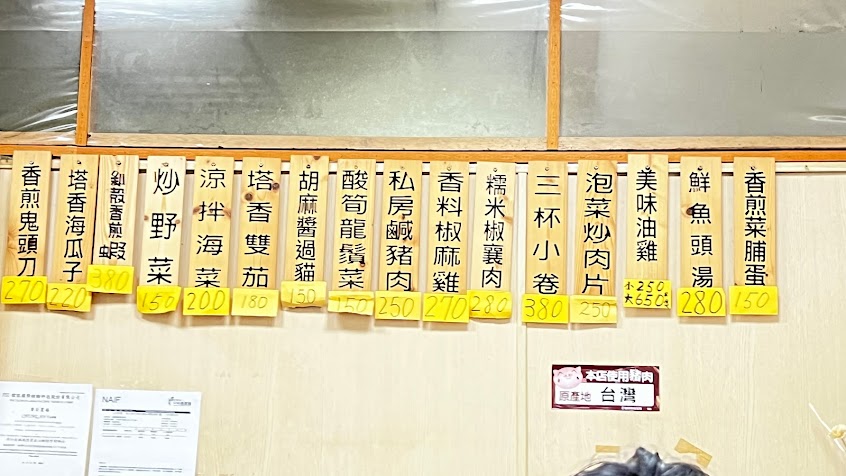 香煎菜脯蛋
150
鮮魚頭湯
280
美味油雞
小250
大650
泡菜炒肉片
250
三杯小卷
380
糯米椒襄肉
280
香料椒麻雞
270
私房鹹豬肉
250
酸筍龍鬚菜
150
胡麻醬過貓
150
塔香雙茄
180
涼拌海菜
200
炒野菜
150
剝殼香煎蝦
380
塔香海瓜子
220
香煎鬼頭刀
270
本店使用豬肉
原產地 台灣
NAIF